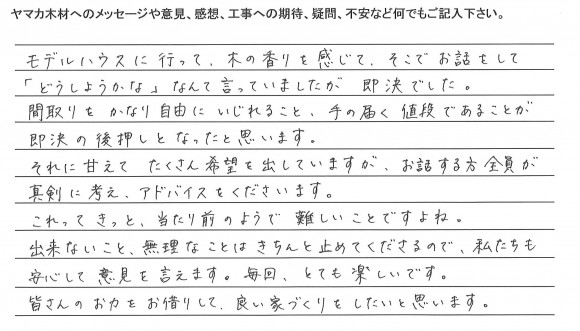 ヤマカ木材へのメッセージや意見、感想、工事への期待、疑問、不安など何でもご記入下さい。
モデルハウスに行って、木の香りを感じて、そこでお話をして
「どうしようかな」なんて言っていましたが 即決でした。
間取りを かなり自由に いじれること、手の届く 値段であることが
即決の後押しとなったと思います。
それに甘えて たくさん希望を出していますが、お話する方全員が
真剣に考え、アドバイスをくださいます。
これって きっと、当たり前のようで 難しいことですよね。
出来ないこと、無理なことは きちんと止めてくださるので、私たちも
安心して 意見を言えます。毎回、とても楽しいです。
皆さんのお力をお借りして、良い家づくりをしたいと思います。